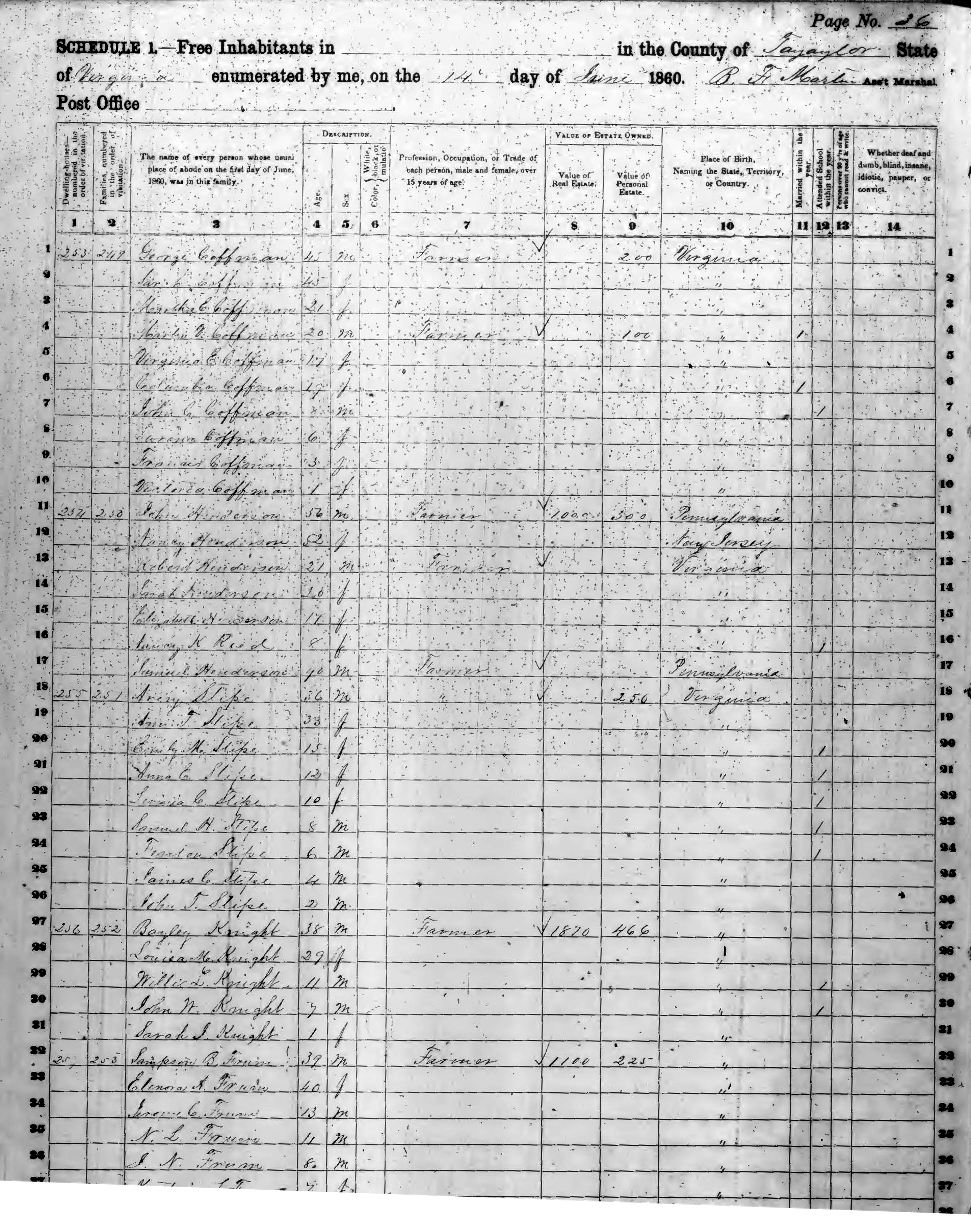 Page No. 26
SCHEDULE 1.—Free Inhabitants in in the County of Tayaylor State
of Virginia enumerated by me, on the 14 day of June 1860. B. F. Martin Ass't Marshal.
Post Office
Dwelling-houses—numbered in the order of visitation.
Families numbered in the order of visitation.
The name of every person whose usual place of abode on the first day of June, 1860, was in this family.
DESCRIPTION.
Age.
Sex
Color, White, black, or mulatto
Profession, Occupation, or Trade of each person, male and female, over 15 years of age.
VALUE OF ESTATE OWNED.
Value of Real Estate.
Value of Personal Estate.
Place of Birth, Naming the State, Territory, or Country.
Married within the year
Attended School within the year
Persons over 20 y'rs of age who cannot read & write.
Whether deaf and dumb, blind, insane, idiotic, pauper, or convict.
1 2 3 4 5 6 7 8 9 10 11 12 13 14
1 253 249 George Coffman m Farmer 200 Virginia 1
2 Coffman 45 f " 2
3 Martha E Coffman 21 f " 3
4 Martin V. Coffman 20 m Farmer 100 " 1 4
5 Virginia E Coffman 17 f " 5
6 Columbia Coffman 17 f " 1 6
7 John C Coffman 8 m " 1 7
8 Coffman 6 f " 8
9 Francis Coffman 3 f " 9
10 Victoria Coffman 1 f " 10
11 254 250 John Henderson 56 m Farmer 1000 300 Pennsylvania 11
12 Nancy Henderson 52 f New Jersey 12
13 Robert Henderson 21 m Farmer Virginia 13
14 Sarah Henderson 20 f " 14
15 Elizabeth Henderson 17 f " 15
16 Nancy K Reed 8 f " 1 16
17 Samuel Henderson 90 m Farmer Pennsylvania 17
18 255 251 Avery Stipe 36 m " 250 Virginia 18
19 Ann T. Stipe 33 f " 19
20 Emily M. Stipe 15 f " 1 20
21 Anna C. Stipe 12 f " 1 21
22 C. Stipe 10 f " 1 22
23 Samuel H. Stipe 8 m " 1 23
24 Stipe 6 m " 1 24
25 James C Stipe 4 m " 25
26 John T. Stipe 2 m " 26
27 256 252 Bayley Knight 38 m Farmer 1820 466 " 27
28 Louisa M. Knight 29 f " 28
29 Willie L. Knight 11 m " 1 29
30 John W. Knight 7 m " 1 30
31 Sarah J. Knight 1 f " 31
32 257 253 Sampson B. Frum 39 m Farmer 1100 225 " 32
33 Elenora A. Frum 40 f " 33
34 C. Frum 13 m 34
35 N. L. Frum 11 m " 35
36 J. N. Frum 8 m " 36
37 7 f " 37
38